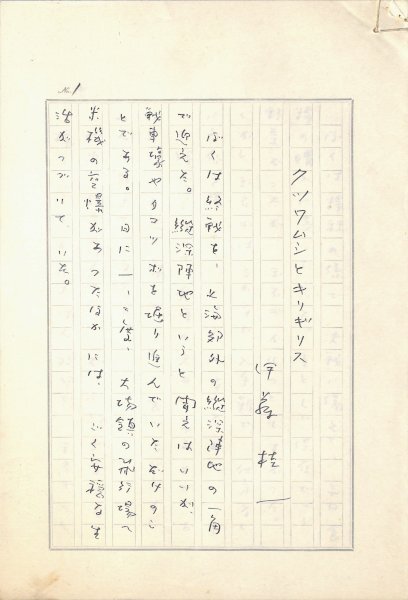 No. 1
クツワムシとキリギリス
伊藤桂一
ぼくは終戦を、上海郊外の縦深陣地の一角
で迎えた。縦深陣地というと聞えはいいが、
戦車壕やタコツボを掘り進んでいただけのこ
とである。日に一、二度、大場鎮の飛行場へ
米機の空爆があつたほかには、ごく安穏な生
活がつづいていた。